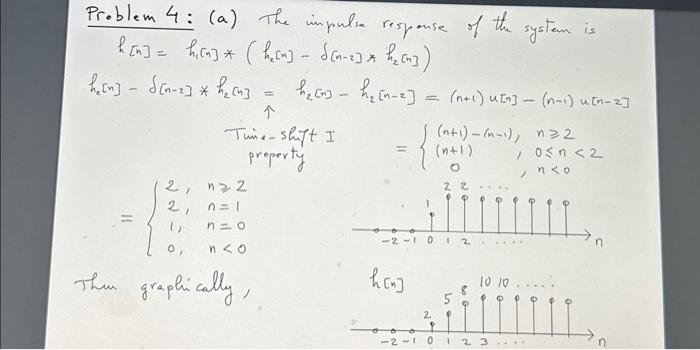 Problem 4: (a) The impulse response of the system is
h[n] = h₁[n] * (h₂[n] - δ[n-2] * h₂[n])
h₂[n] - δ[n-2] * h₂[n] = h₂[n] - h₂[n-2] = (n+1) u[n] - (n-1) u[n-2]
↑
Time-shift I
property
= { (n+1)-(n-1), n ≥ 2
(n+1) , 0 ≤ n < 2
0 , n < 0
= { 2, n ≥ 2
2, n = 1
1, n = 0
0, n < 0
2 2 ....
1
-2 -1 0 1 2 ..... n
Then graphically,
h[n]
2 5 8 10 10 .....
-2 -1 0 1 2 3 .... n